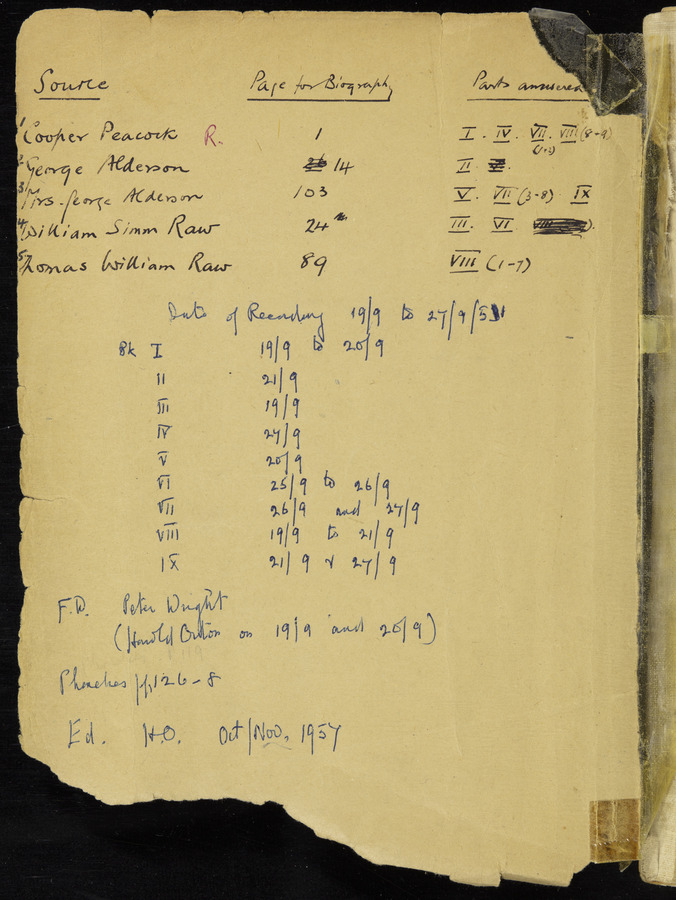 Source Page for Biography Parts answered
1 Cooper Peacock R. 1 I . IV . VII . VIII (8-9)
(1+2)
2 George Alderson 14 II .
3 Mrs. George Alderson 103 V . VII (3-8) IX
4 William Simm Raw 24 III . VI
5 Thomas William Raw 89 VIII (1-7)
Date of Recording 19/9 to 27/9/51
Bk I 19/9 to 20/9
II 21/9
III 19/9
IV 27/9
V 20/9
VI 25/9 to 26/9
VII 26/9 and 27/9
VIII 19/9 to 21/9
IX 21/9 & 27/9
F.W. Peter Wright
(Harold Orton on 19/9 and 20/9)
Phonetics pp. 126-8
Ed. H.O. Oct/Nov, 1957